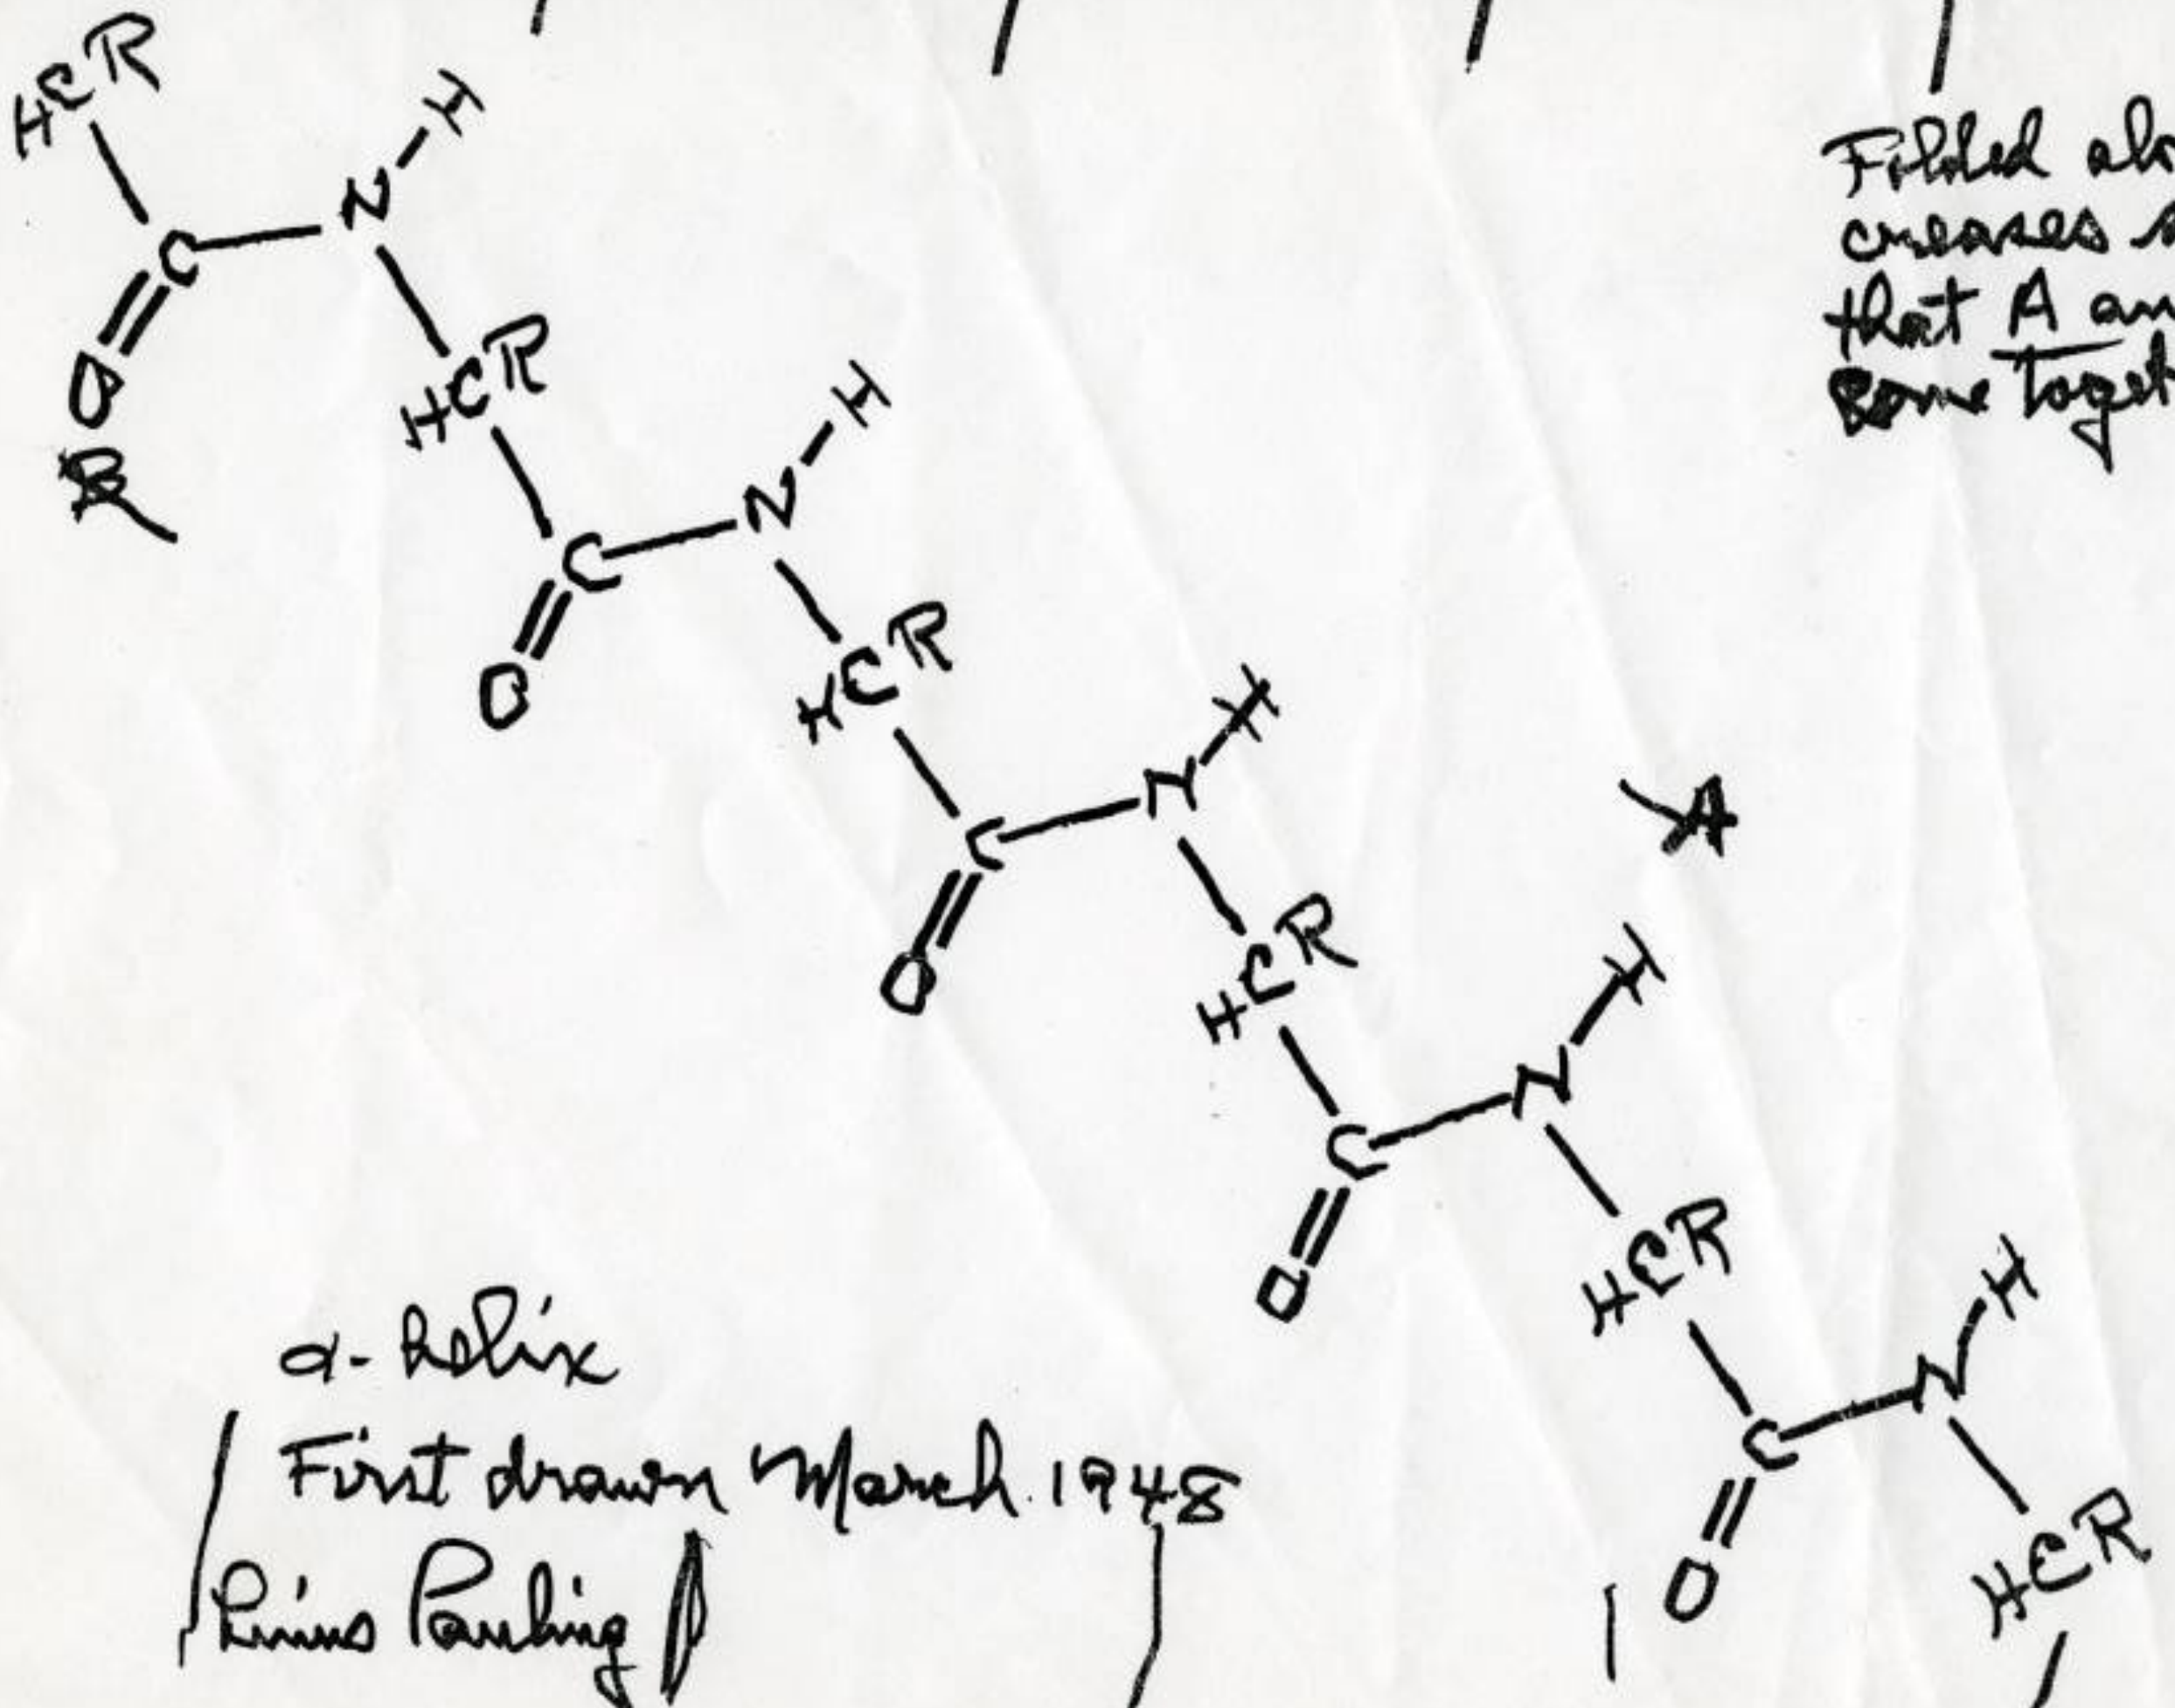 HCR
N-H
C
O
B
HCR
N-H
C
O
HCR
N-H
C
O
A
HCR
N-H
C
O
HCR
N-H
C
O
HCR
Folded alo
creases s
that A an
come toget
α-helix
First drawn March 1948
Linus Pauling